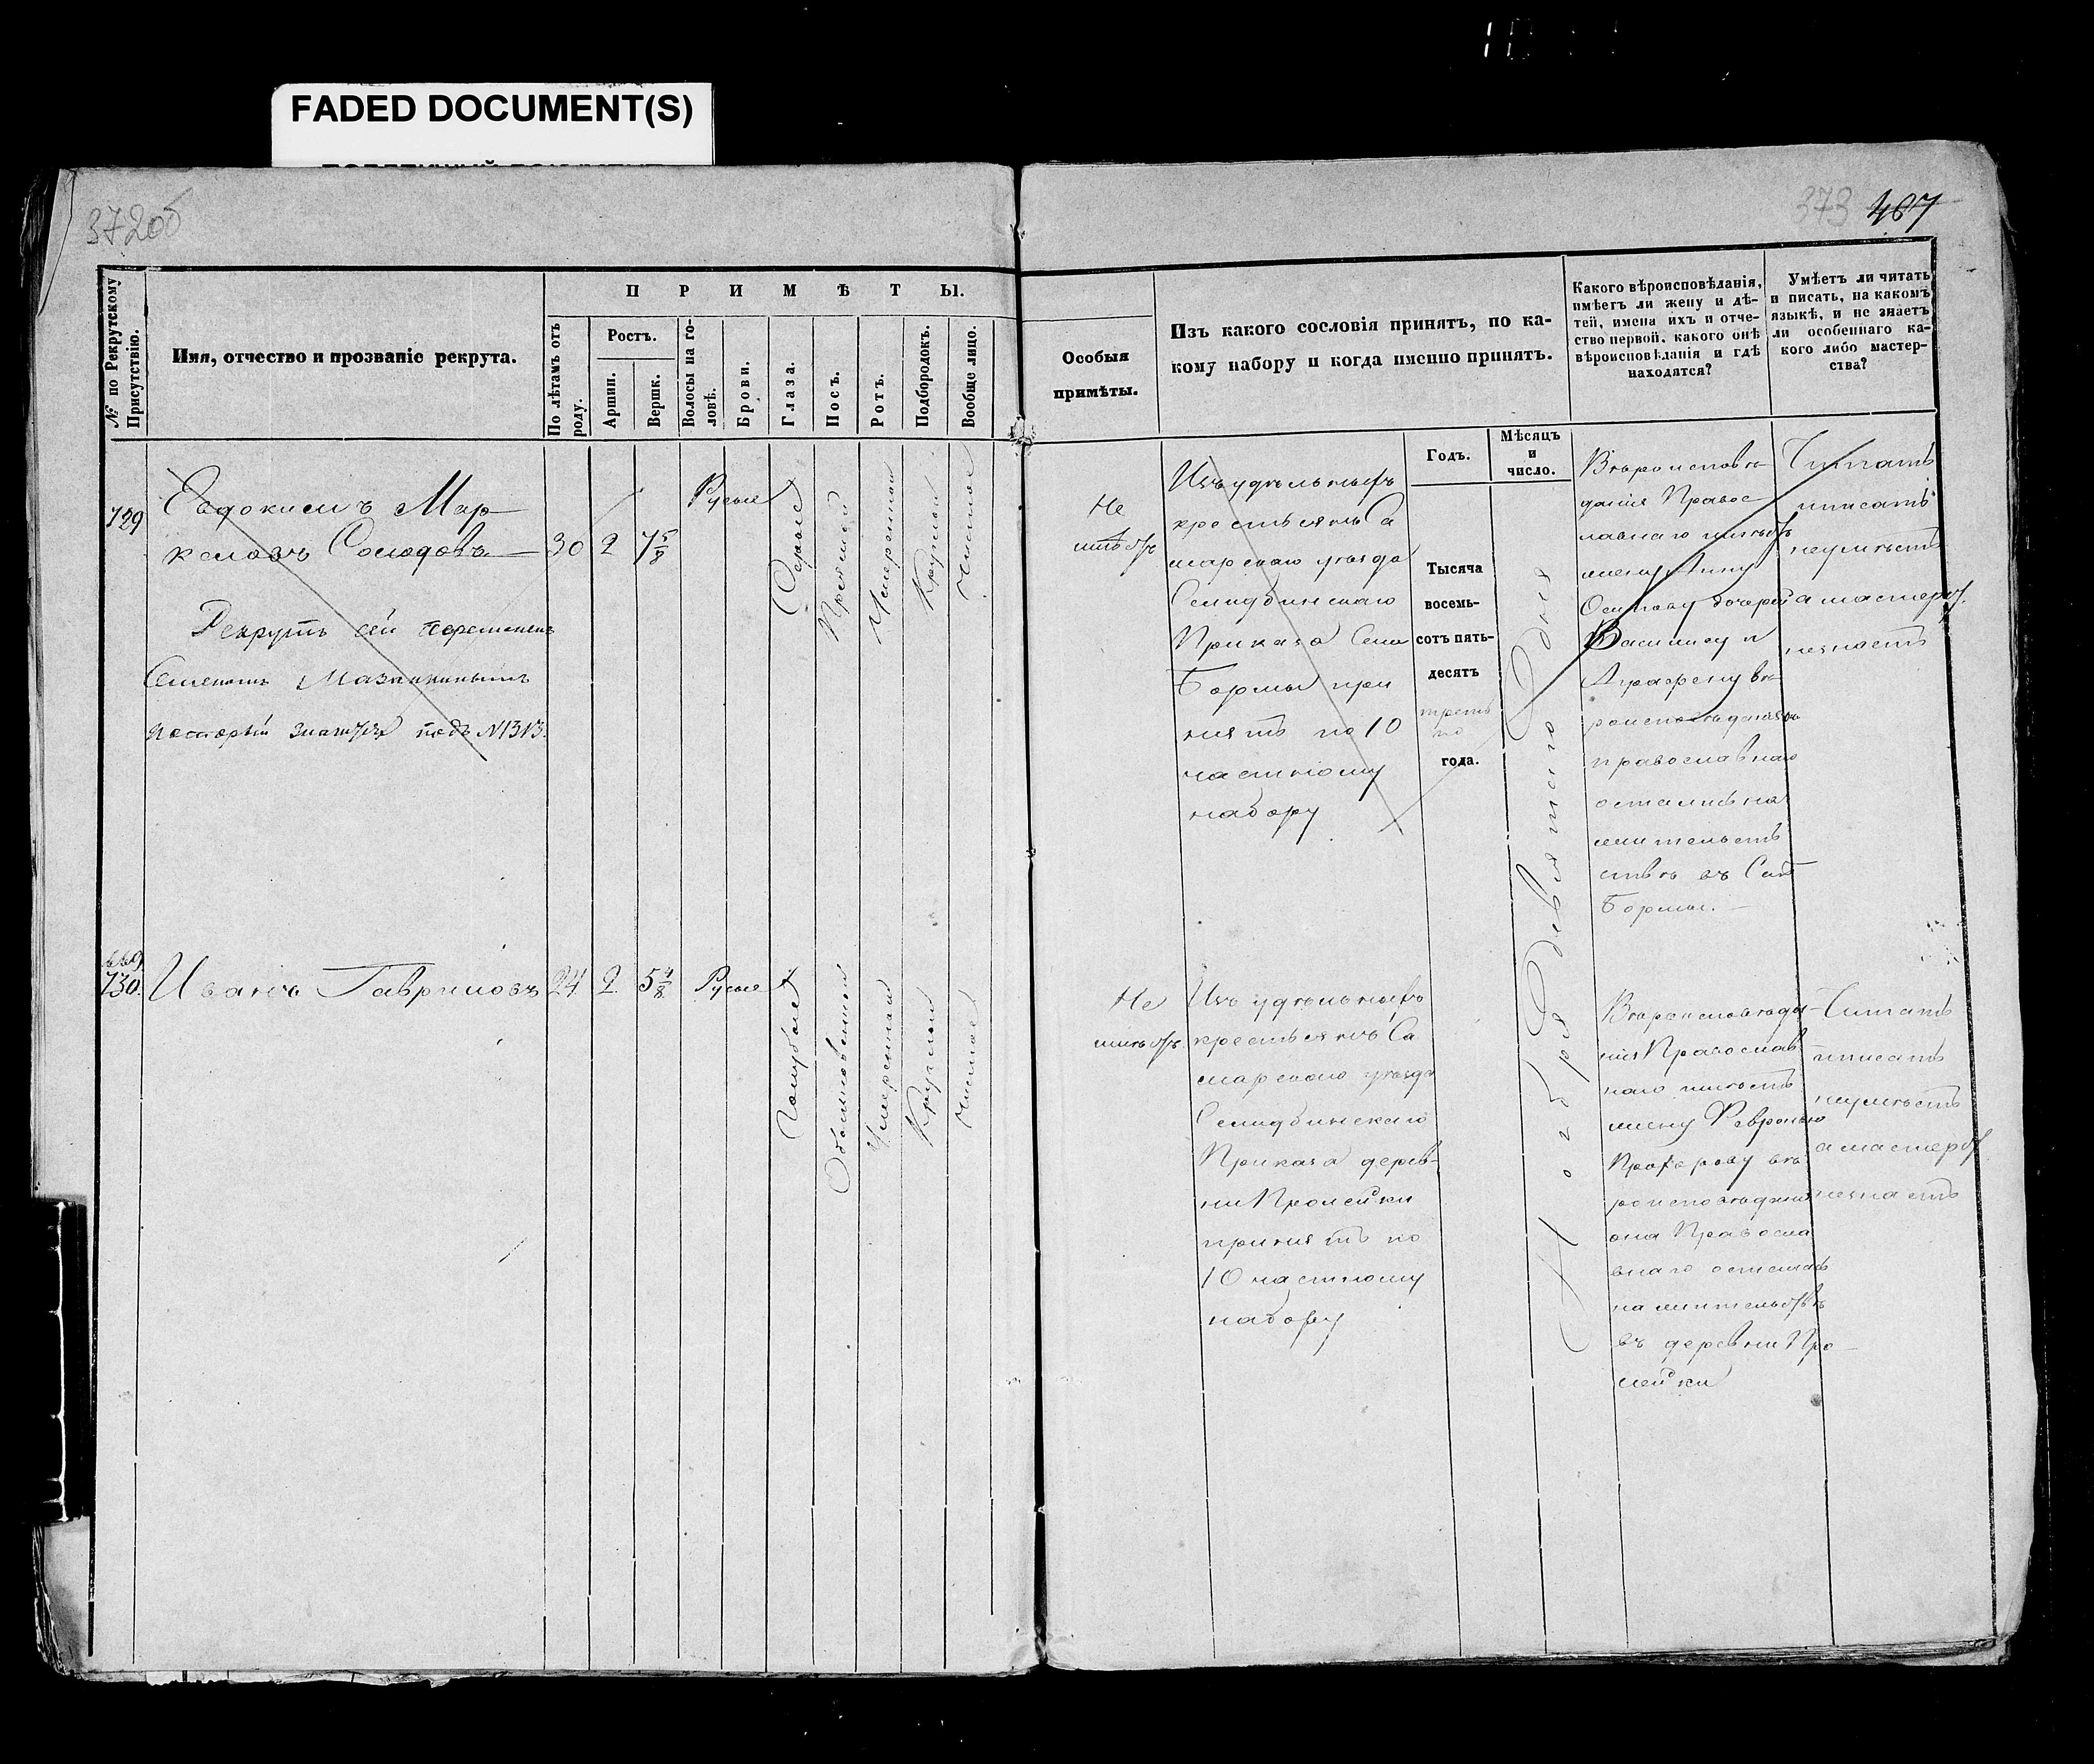 FADED DOCUMENT(S)
372об
373 467
№ по Рекрутскому
Присутствію.
Имя, отчество и прозваніе рекрута.
ПРИМѢТЫ.
По лѣтамъ отъ
роду.
Ростъ.
Аршин.
Вершк.
Волосы на го-
ловѣ.
Брови.
Глаза.
Носъ.
Ротъ.
Подбородокъ.
Вообще лицо.
Особыя
примѣты.
Изъ какого сословія принятъ, по ка-
кому набору и когда именно принятъ.
Какого вѣроисповѣданія,
имѣетъ ли жену и дѣ-
тей, имена ихъ и отче-
ство первой, какого онѣ
вѣроисповѣданія и гдѣ
находятся?
Умѣетъ ли читать
и писать, на какомъ
языкѣ, и не знаетъ
ли особеннаго ка-
кого либо мастер-
ства?
Годъ.
Мѣсяцъ
и
число.
729
Евдокимъ Мар-
келовъ Солодовъ
30 2 7 5/8
Русые
Сѣрые
Прямой
Умеренной
Круглой
Чистое
Рекрутъ сей
Семеномъ
который подъ №1313.
Не
имѣетъ
Изъ удѣльныхъ
крестьянъ Са
марскаго уѣзда
Приказа Села
Бормы при
нятъ по 10
частному
набору
Тысяча
восемь-
сотъ пять-
десятъ
третья
го
года.
Ноября Девятаго дня
Вѣроисповѣ-
данія Правос-
лавнаго имѣетъ
жену Анну
Осипову дочерей
Василису и
Аграфену вѣ-
роисповѣданія
православнаго
остались на
жительст
ствѣ въ Селѣ
Бормы.
Читать
и писать
неумѣетъ
а мастерст.
незнаетъ
669
730.
Иванъ Гавриловъ
24 2 5 4/8
Русые
Голубые
Обыкновенной
Умеренной
Круглой
Чистое
Не
имѣетъ
Изъ удѣльныхъ
крестьянъ Са
марскаго уѣзда
Приказа дерев-
ни Пролейки
принятъ по
10 частному
набору
Вѣроисповѣда-
нія Православ
наго имѣетъ
жену Февронью
Прохорову вѣ
роисповѣданія
она Правосла
внаго осталась
на жительствѣ
въ деревни Про-
лейки
Читать
и писать
неумѣетъ
а мастерст
незнаетъ